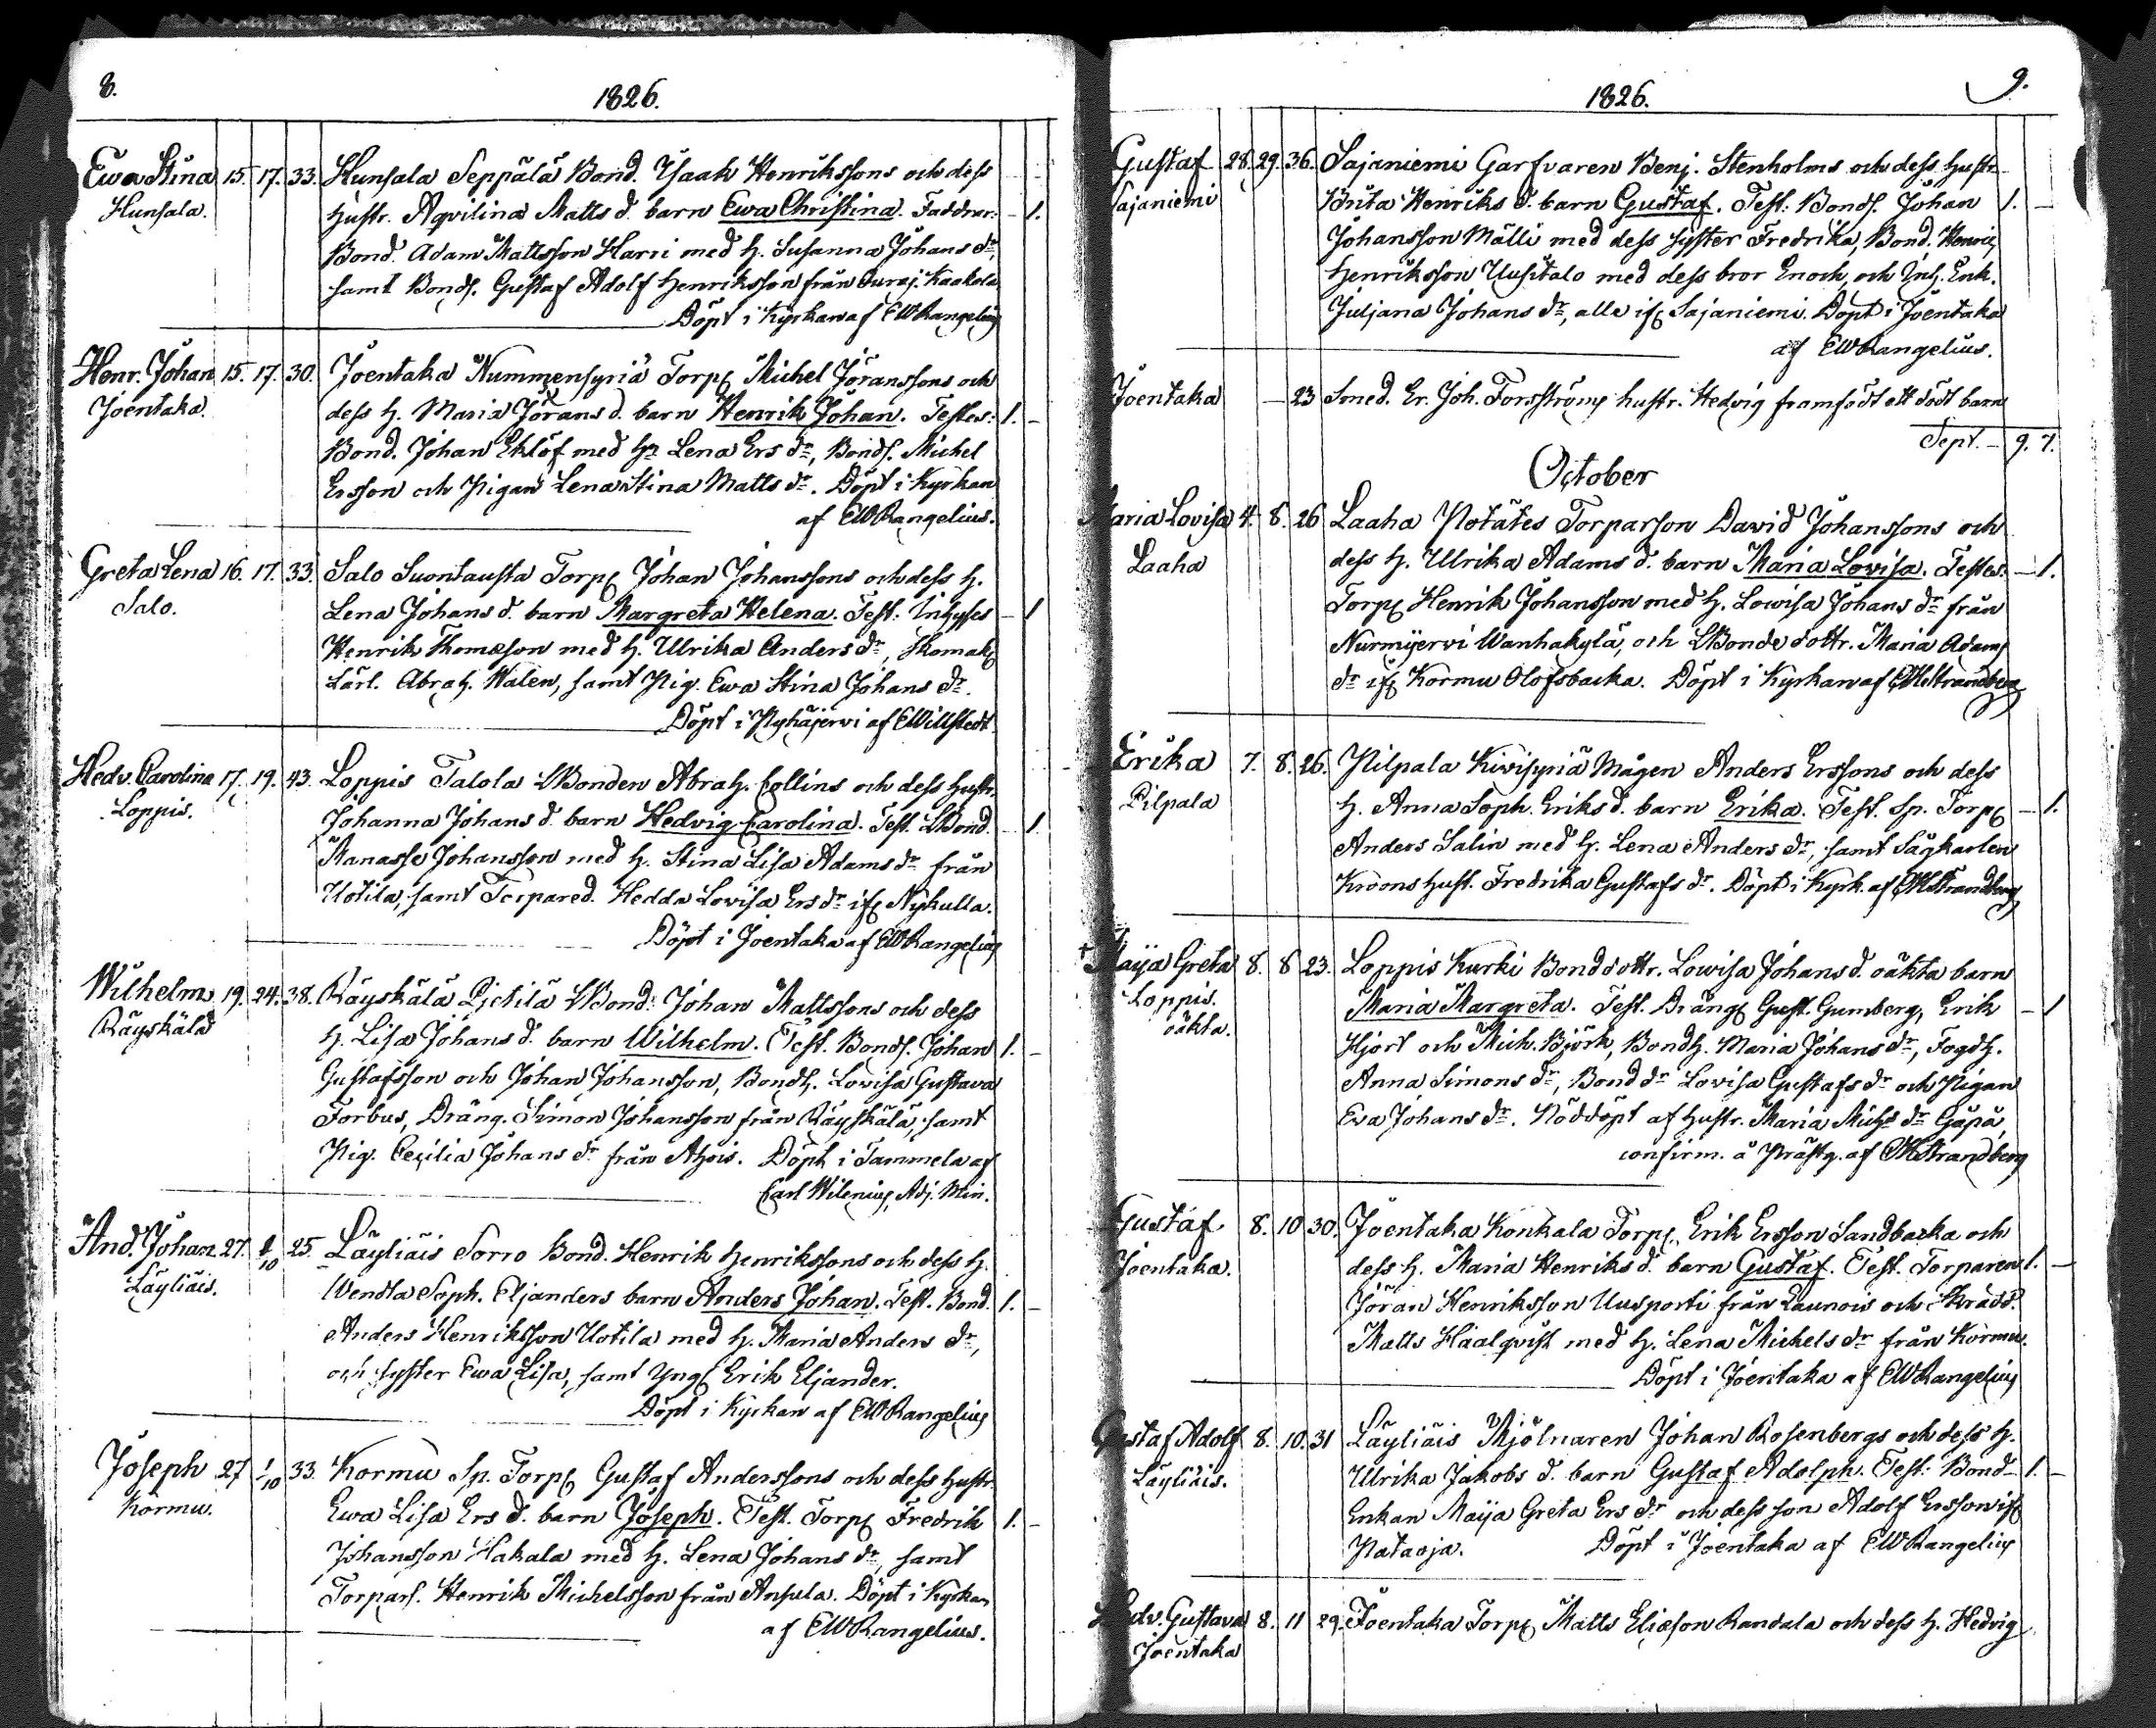 8.
1826.
Ewa Stina 15. 17. 33. Hunsala Seppälä Bond. Isaak Henrikssons och dess
Hunsala. hustr. Aqvilina Matts d. barn Ewa Christina. Faddrar: – 1.
Bond. Adam Mattsson Harri med h. Susanna Johans dr,
samt Bonds. Gustaf Adolf Henriksson från Kaakola
Döpt i Kyrkan af EWRangelius
Henr. Johan 15. 17. 30. Joentaka Nummensyriä Torp. Michel Jöranssons och
Joentaka. dess h. Maria Jörans d. barn Henrik Johan. Testes: 1. –
Bond. Johan Eklöf med h. Lena Ers dr, Bonds. Michel
Ersson och Pigan Lena Stina Matts dr. Döpt i Kyrkan
af EWRangelius.
Greta Lena 16. 17. 33. Salo Suontausta Torp. Johan Johanssons och dess h.
Salo. Lena Johans d. barn Margreta Helena. Test: Inhyses – 1
Henrik Thomæson med h. Ulrika Anders dr, Skomak.
Lärl. Abrah. Walen, samt Pig. Ewa Stina Johans dr.
Döpt i Pyhäjervi af EWillstedt.
Hedv. Carolina 17. 19. 43. Loppis Talola LBonden Abrah. Collins och dess hustr.
Loppis. Johanna Johans d. barn Hedvig Carolina. Test. LBond. – 1
Manasse Johansson med h. Stina Lisa Adams dr från
Uotila, samt Torpared. Hedda Lovisa Ers dr if. Nykulla.
Döpt i Joentaka af EWRangelius
Wilhelm 19. 24. 38. Räyskälä Pietilä LBond: Johan Mattssons och dess
Räyskälä h. Lisa Johans d. barn Wilhelm. Test. Bonds. Johan 1. –
Gustafsson och Johan Johansson, Bondh. Lovisa Gustava
Forbus, Dräng. Simon Johansson från Räyskälä, samt
Pig. Cecilia Johans dr från Ahois. Döpt i Tammela af
Carl Wilenius, Adj. Min.
And. Johan 27. 1/10 25. Läyliäis Torro Bond. Henrik Henrikssons och dess h.
Läyliäis. Wendla Soph. Eljanders barn Anders Johan. Test. Bond. 1. –
Anders Henriksson Uotila med h. Maria Anders dr,
och syster Ewa Lisa, samt Yngl. Erik Eljander.
Döpt i Kyrkan af EWRangelius
Joseph 27 1/10 33. Kormu Sp. Torp. Gustaf Anderssons och dess hustr.
Kormu. Ewa Lisa Ers d. barn Joseph. Test. Torp. Fredrik 1. –
Johansson Hakala med h. Lena Johans dr, samt
Torpars. Henrik Michelsson från Ansula. Döpt i Kyrkan
af EWRangelius.
9.
1826.
Gustaf 28. 29. 36. Sajaniemi Garfvaren Benj. Stenholms och dess hustr.
Sajaniemi Brita Henriks d. barn Gustaf. Test: Bonds. Johan 1. –
Johansson Mälli med dess syster Fredrika, Bond. Henric
Henriksson Uusitalo med dess bror Enoch, och Inh. Enk.
Juljana Johans dr, alla if. Sajaniemi. Döpt i Joentaka
af EWRangelius.
Joentaka – 23 Smed. Er. Joh. Forsströms hustr. Hedvig framfödt ett dödt barn
Sept. – 9. 7.
October
Maria Lovisa 4. 8. 26 Laaha Notätes Torparson David Johanssons och
Laaha dess h. Ulrika Adams d. barn Maria Lovisa. Testes: – 1.
Torp. Henrik Johansson med h. Lowisa Johans dr från
Nurmijervi Wanhakylä, och LBonde dottr. Maria Adams
dr if. Kormu Olofsbacka. Döpt i Kyrkan af Strandberg
Erika 7. 8. 26. Pilpala Kivisyriä Mågen Anders Erssons och dess
Pilpala h. Anna Soph. Eriks d. barn Erika. Test. Sp. Torp. – 1.
Anders Salin med h. Lena Anders dr, samt Sågkarlen
Kroons hust. Fredrika Gustafs dr. Döpt i Kyrk. af Strandberg
† Maija Greta 8. 8 23. Loppis Kurki Bonddottr. Lowisa Johans d. oäkta barn
Loppis. Maria Margreta. Test. Dräng. Gust. Gumberg, Erik – 1
oäkta. Hjort och Mich. Björk, Bondh. Maria Johans dr, Fogdh.
Anna Simons dr, Bond dr Lovisa Gustafs dr och Pigan
Eva Johans dr. Nöddöpt af hustr. Maria Michs dr Gåpå,
confirm. å Prästg. af Strandberg
Gustaf 8. 10 30. Joentaka Konkala Torp. Erik Ersson Sandbacka och
Joentaka. dess h. Maria Henriks d. barn Gustaf. Test. Torparen 1. –
Jöran Henriksson Uusporti från Launois och Skrädd.
Matts Häälqvist med h. Lena Michels dr från Kormu.
Döpt i Joentaka af EWRangelius
Gustaf Adolf 8. 10. 31 Läyliäis Mjölnaren Johan Rosenbergs och dess h.
Läyliäis. Ulrika Jakobs d. barn Gustaf Adolph. Test: Bond- 1. –
Enkan Maija Greta Ers dr och dess son Adolf Ersson if.
Pataoja. Döpt i Joentaka af EWRangelius
Hedv. Gustava 8. 11 29. Joentaka Torp. Matts Eliæson Randala och dess h. Hedvig
Joentaka